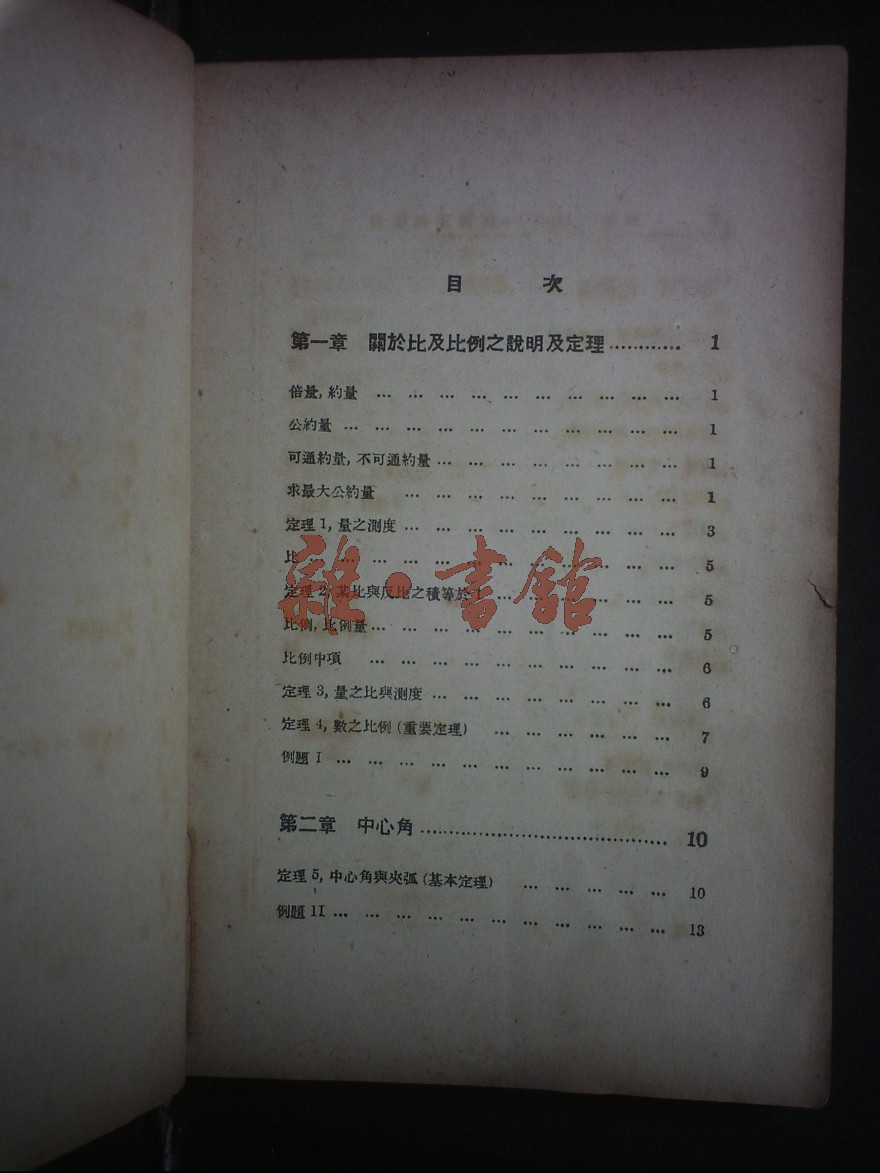 目 次
第一章 關於比及比例之說明及定理 ............ 1
倍量, 約量 … … … … … … … … … … 1
公約量 … … … … … … … … … … … 1
可通約量, 不可通約量 … … … … … … … … 1
求最大公約量 … … … … … … … … … 1
定理 1, 量之測度 … … … … … … … … … 3
比 … … … … … … … … … … … … 5
定理 2, 某比與反比之積等於 1 … … … … … … 5
比例, 比例量 … … … … … … … … … … 5
比例中項 … … … … … … … … … … 6
定理 3, 量之比與測度 … … … … … … … … 6
定理 4, 數之比例 (重要定理) … … … … … … 7
例題 I … … … … … … … … … … … 9
第二章 中心角 ...................................... 10
定理 5, 中心角與夾弧 (基本定理) … … … … … 10
例題 II … … … … … … … … … … … 13
雜·書館